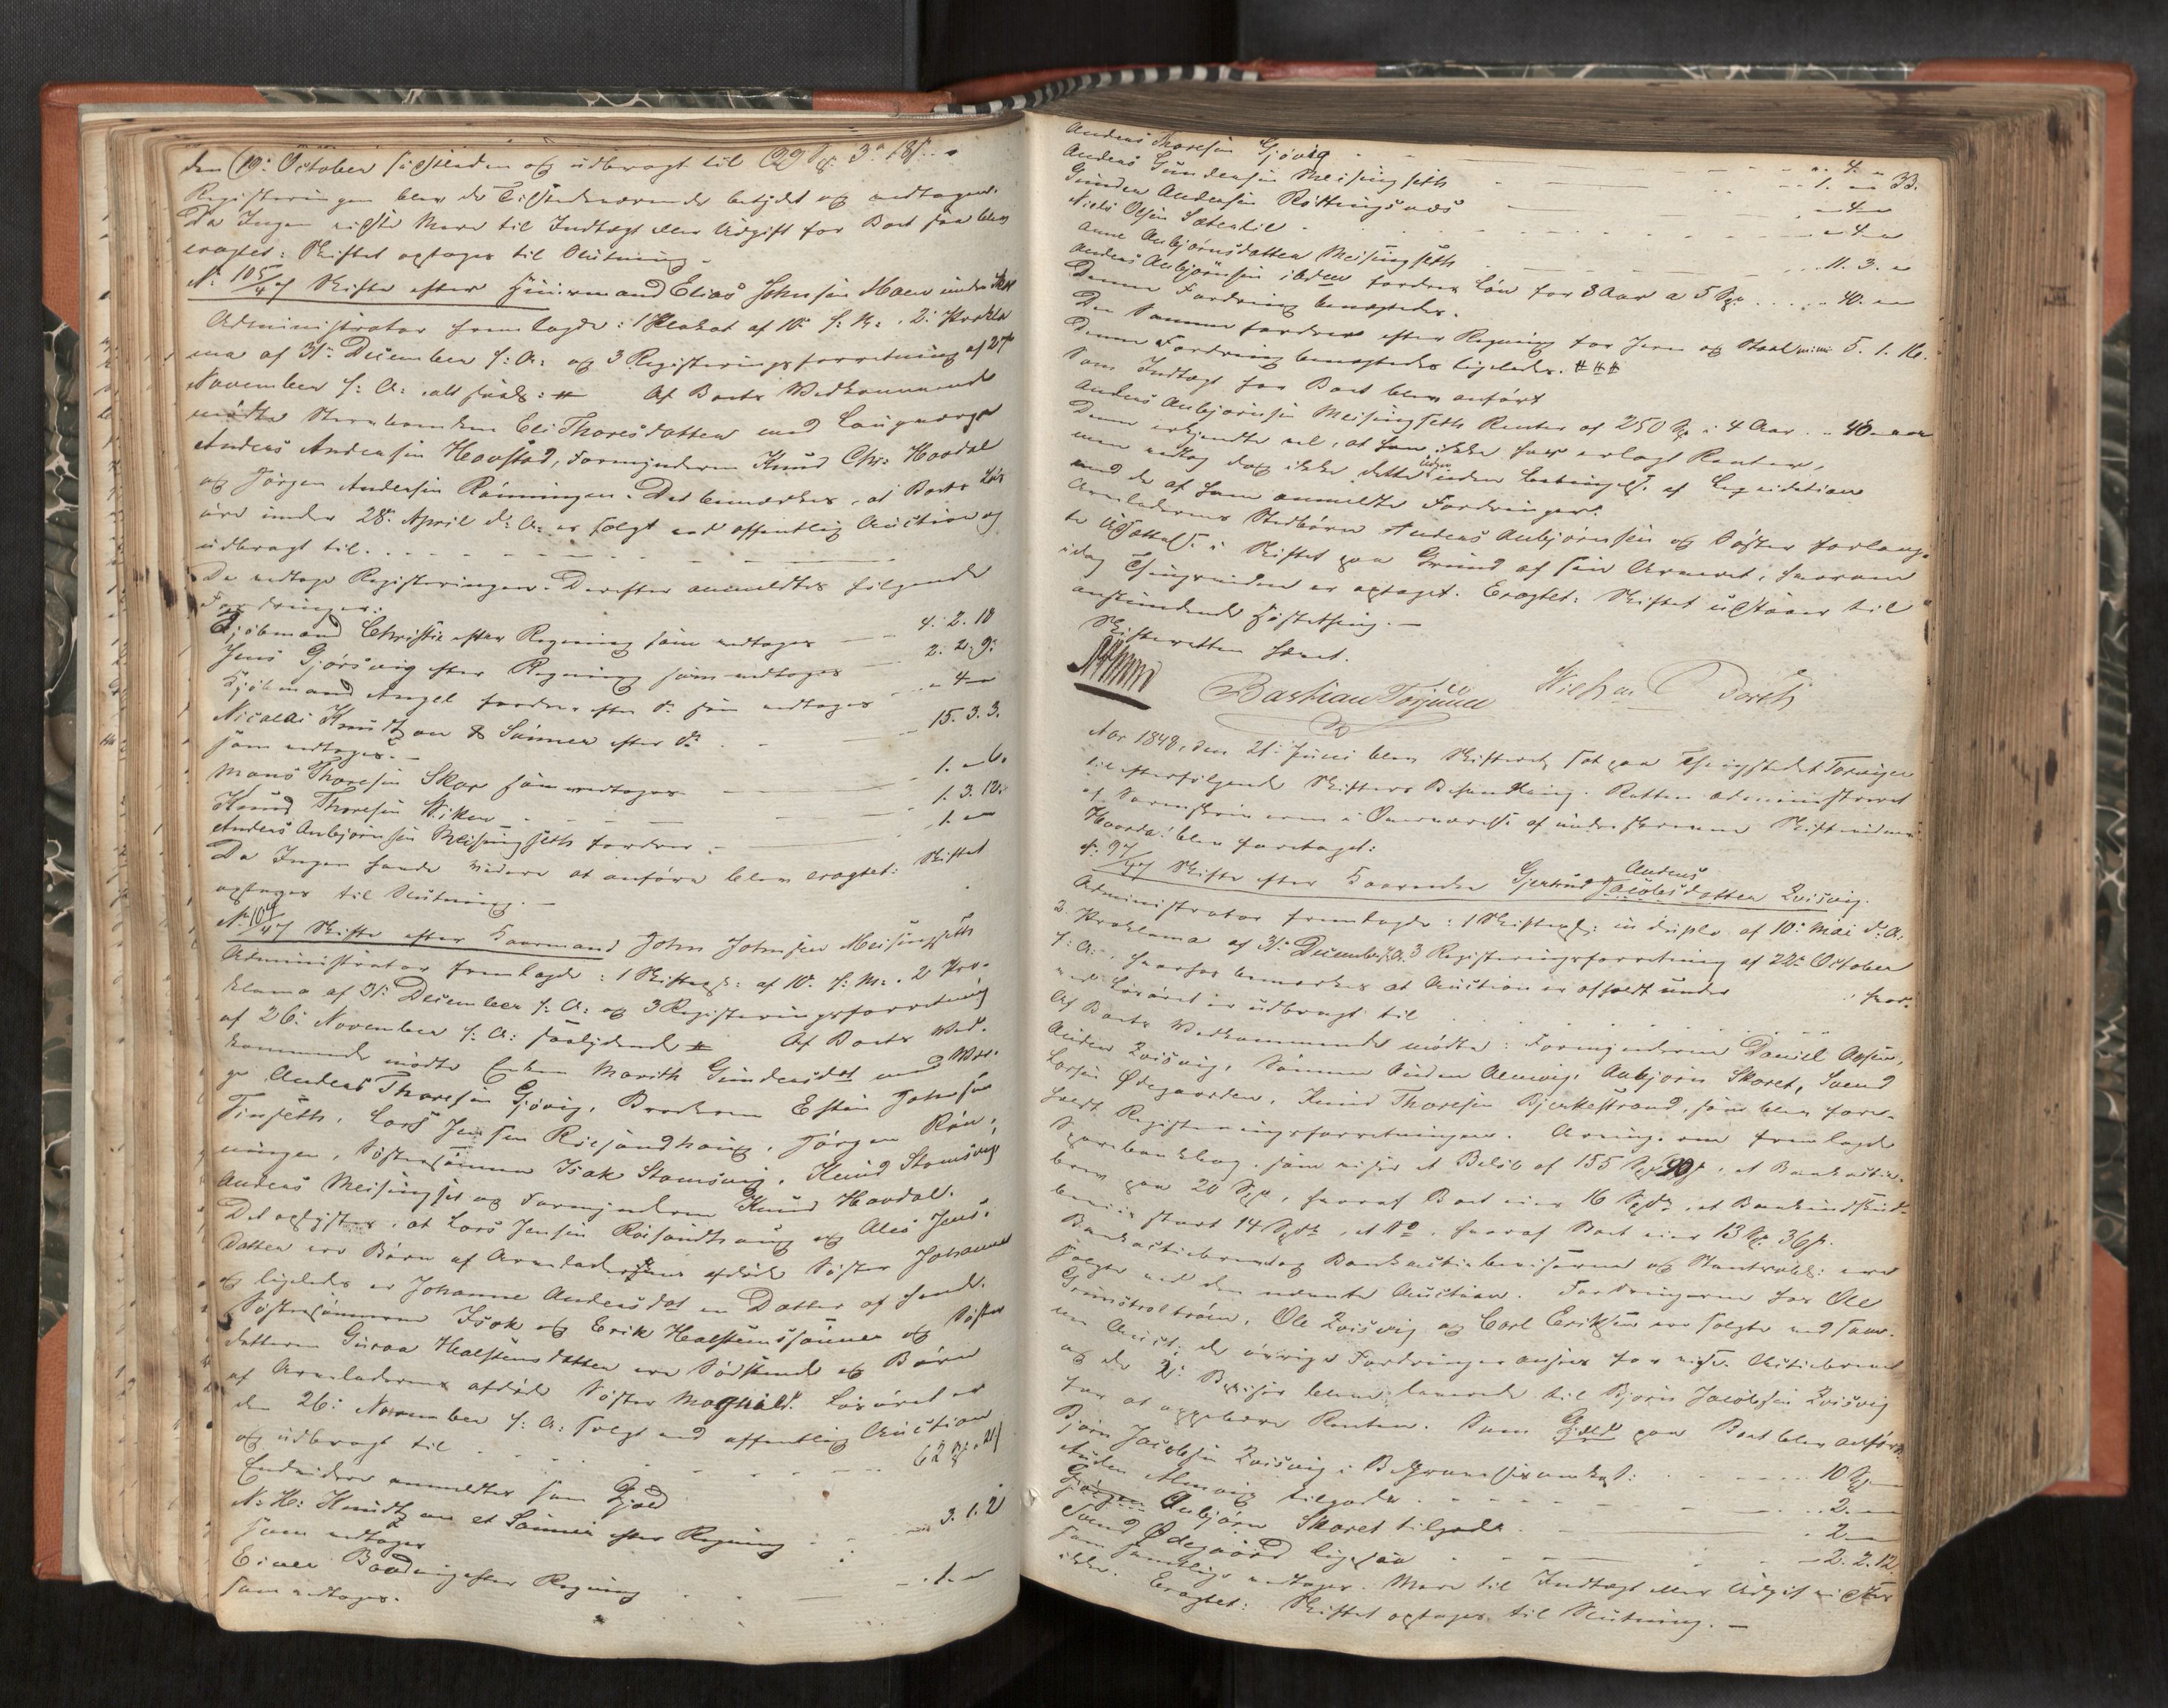 den 19: October sidstleden og udbragt til 29 Spd. 3 18 s.
Registeringen blev de Tilstedeværende betydet og vedtagen.
Da Ingen vidste Mere til Indtægt eller Udgift for Boet saa blev
eragtet: Skiftet optages til Slutning.
N: 105/47 Skifte efter Huusmand Elias Johnsen Moen under
Administrator fremlagde: 1 Plakat af 10: f: M:, 2: Prokla
ma af 31: December f: A: og 3 Registeringsforretning af 27de
November f: A: alt saal: # Af Boets Vedkommende
mødte Sterbenken Eli Thoresdatter med Laugværge
Anders Andersen Hovstad, Formynderen Knud Chr: Hoodal
og Jørgen Andersen Rønningen. Det bemærkes, at Boets Løs
øre under 28: April d: A: er solgt ved offentlig Auction og
udbragt til
De vedtoge Registeringen. Derefter anmeldtes følgende
Fordringer:
Kjøbmand Christie efter Regning som vedtages 4. 2. 18
Jens Gjørsvig efter Regning som vedtages 2. 2. 9.
Kjøbmand Angel fordrer efter do som vedtages " 4 "
Nicolai Knudtzon & Sønner efter do 15. 3. 3.
som vedtages.
Mons Thoresen Skar som vedtages 1. " 6.
Knud Thoresen Viken 1. 3. 12.
Anders Anbjørnsen Meisingseth fordrer 1. "
Da Ingen havde videre at anføre blev eragtet: Skiftet
optages til Slutning.
N: 104/47 Skifte efter Kaarmand John Johnsen Meisingseth
Administrator fremlagde: 1 Skifteplk: af 10: f: M:, 2 Pro-
klama af 31: December f: A: og 3 Registeringsforretning
af 26: November f: A: saalydende # Af Boets Ved-
kommende mødte Enken Marith Gundersdat med Vær-
ge Anders Thoresen Gjøvig, Broderen Esten Johnsen
Tinseth, Lars Jensen Roisandhaug, Jørgen Røn-
ningen, Søstersønnen Isak Stomsvig, Knud Stomsvig
Anders Meisingset og Formynderen Knud Hoodal.
Det oplystes, at Lars Jensen Roisandhaug og Ales Jens-
datter ere Børn af Arveladerens afdøde Søster Johanna
og ligeledes er Johanne Andersdat en Datter af hende.
Søstersønnerne Isak og Erik Halstenssønner og Søster
datteren Guroa Halstensdatter ere Sødskende og Børn
af Arveladerens afdøde Søster Magnild. Løsøret er
den 26: November f: A: solgt ved offentlig Auction
og udbragt til 62 Spd. " 21
Endvidere anmeldtes som Gjæld
N: H: Knudtzon et Sønner efter Regning 3. 1. 2
som vedtages
Einer Boeding efter Regning " 1. "
som vedtages.
Anders Thoresen Gjøvig " 4. "
33.
Anders Gundersen Meisingseth 1. "
Gunder Andersen Røttingsnæs " 4 "
Niels Olsen Sæterlil " 4 "
Anne Anbjørnsdatter Meisingseth 11. 3. "
Anders Anbjørnsen ibdm fordrer Løn for 8 Aar a 5 Spd. 40. "
Denne Fordring benægtedes.
Den Samme fordrer efter Regning for Jern og Staal 5. 1. 16.
Denne Fordring benægtedes ligeledes. ###
Som Indtægt for Boet blev anført
Anders Anbjørnsen Meisingseth Renter af 250 Spd. i 4 Aar 40 "
Denne erkjendte vel, at han ikke har erlagt Renten,
men vedtog dog ikke dette uden Betingelse af Liqvidation
med de af ham anmeldte Fordringer.
Arveladerens Stedbørn Anders Anbjørnsen og Søster forlang-
te Udsættelse i Skiftet paa Grund af sin Arveret, hvorom
idag Thingsvidne er optaget. Eragtet: Skiftet udstaaer til
anstundende Høstething.
Skifteretten hævet.
Bastian Torjulsen Wilhm Dorch
Aar 1848, den 21: Juni blev Skifteret sat paa Thingstedet Torvigen
til efterfølgende Skifters Behandling. Retten administreret
af Sorenskriveren i Overværelse af underskrevne Skiftevidner
Hvorda blev foretaget:
N: 97/47 Skifte efter Kaarenke Gjertrud Anders Jacobsdatter Qvisvig.
Administrator fremlagde: 1 Skifteplk: in duplo af 10: Mai d: A:
2. Proklama af 31: December f: A: 3 Registeringsforretning af 22: October
f: A:, hvorfor bemærkes at Auction er afholdt under hvor-
ved Løsøret er udbragt til
Af Boets Vedkommende mødte: Formynderen Daniel Aspen,
Auden Qvisvig, Sønnen Auden Aleevig, Anbjørn Skaret, Svend
Larsen Ødegaarden, Knud Thoresen Bjerkestrand, som blev fore-
holdt Registeringsforretningen. Arving: ne fremlagde
Sparebankbog, som viser et Beløb af 155 Spd 90 s, et Bankactie-
brev paa 20 Spd, hvoraf Boet eier 16 Spdr, et Bankindskuds
beviis stort 14 Spdr, et do, hvoraf Boet eier 13 Spd. 36 s.
Bankactiebrevet og Bankactiebeviserne og Stantrøbl: ere
solgte ved den nævnte Auction. Fordringerne hos Ole
Grønstrølbrøen, Ole Qvisvig og Carl Eriksen ere solgte ved sam-
me Auct: de øvrige Fordringer ansees for uvisse. Actiebrevet
og de 2: Beviser bleve leverede til Bjørn Jacobsen Qvisvig
for at oppebære Renten. Som Gjæld paa Boet blev anført:
Bjørn Jacobsen Qvisvig i Begravelsesomkost: 10 Spd.
Auden Aleevig tilgode 2. "
Anbjørn Skaret tilgode 2 "
Svend Ødegaard ligesaa 2. 2. 12.
som samtlige vedtages. Mere til Indtægt eller Udgift vidstes
ikke. Eragtet: Skiftet optages til Slutning.